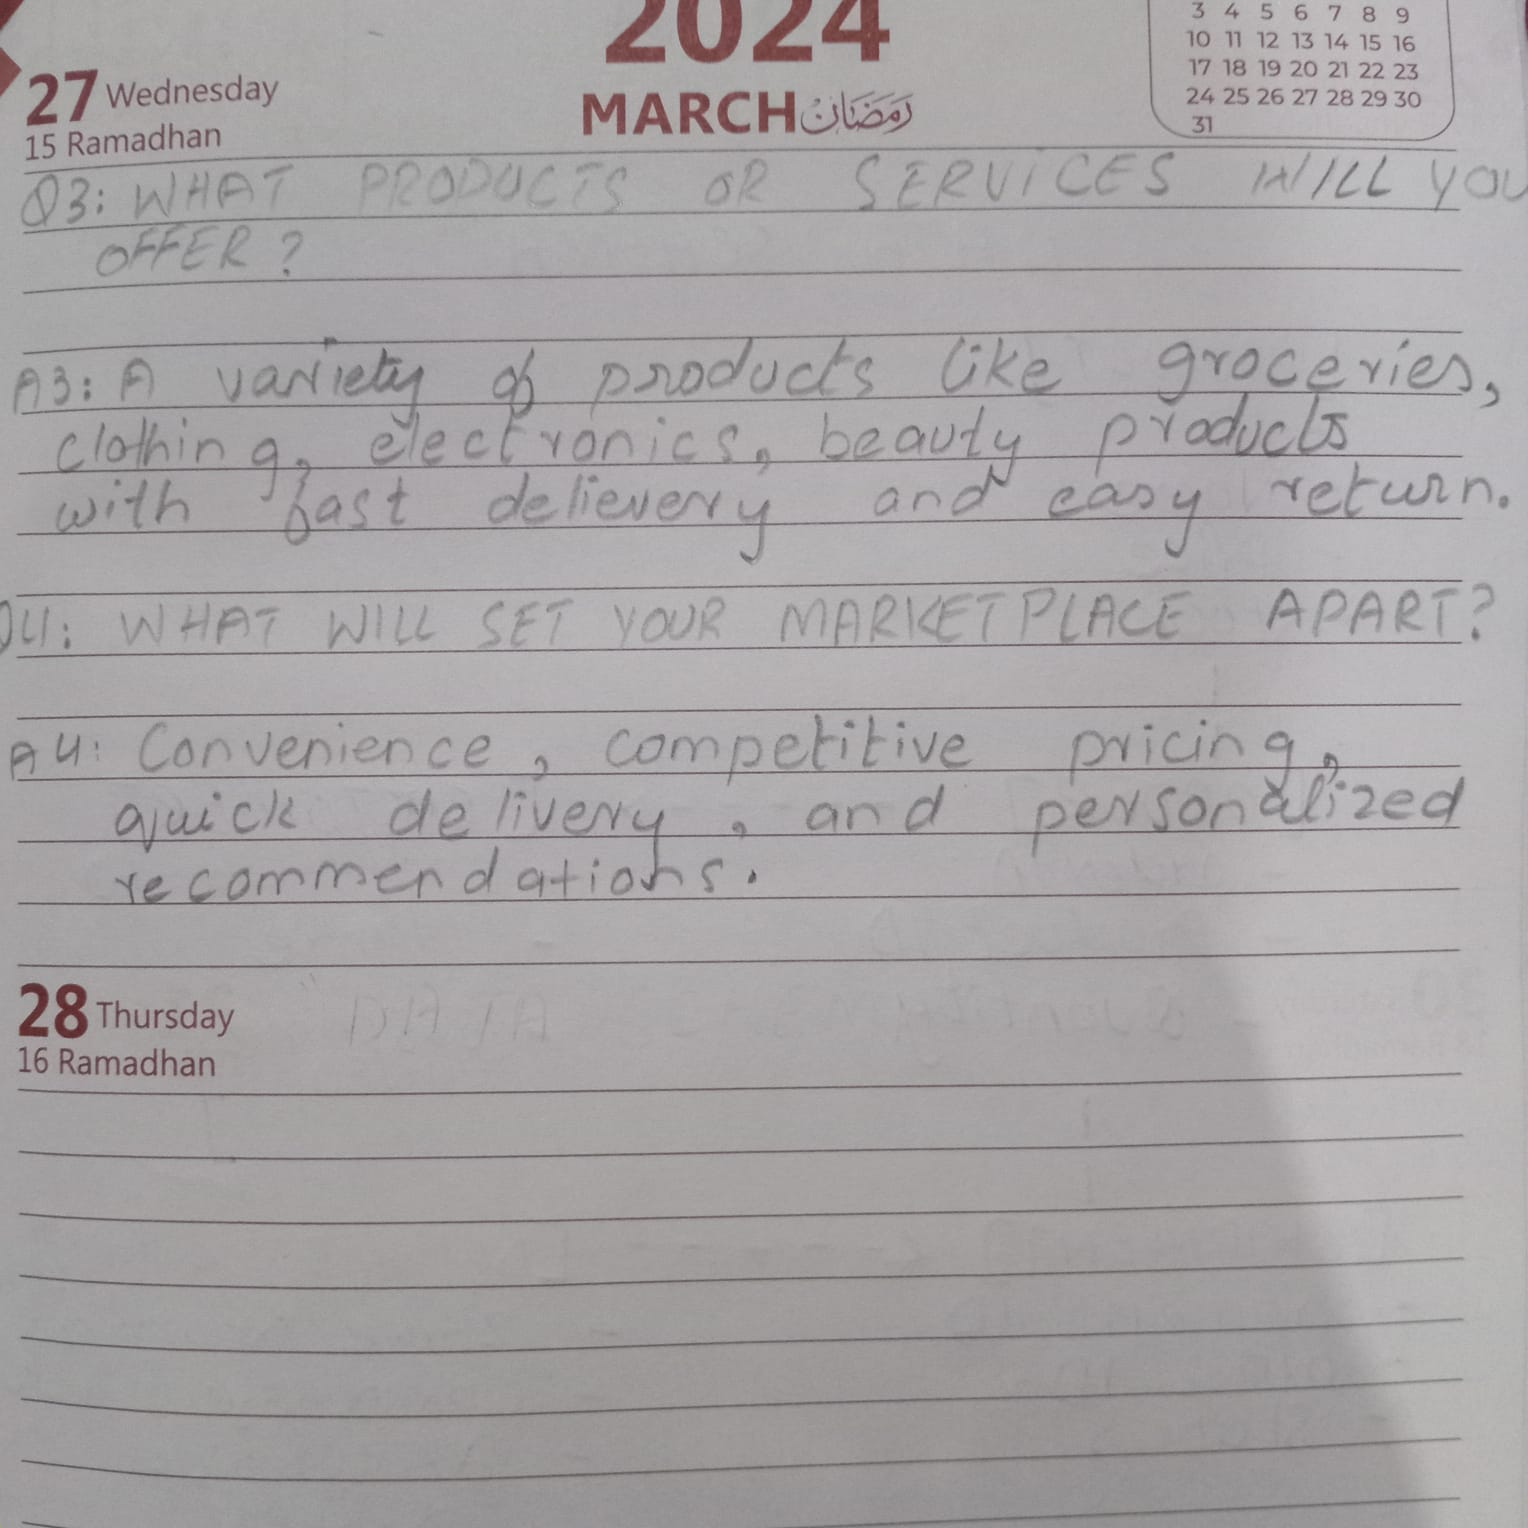 2024
3 4 5 6 7 8 9
10 11 12 13 14 15 16
17 18 19 20 21 22 23
24 25 26 27 28 29 30
31
27 Wednesday
15 Ramadhan
MARCH رَمَضَان
Q3: WHAT PRODUCTS OR SERVICES WILL YOU
OFFER?
A3: A variety of products like groceries,
clothing, electronics, beauty products
with fast delievery and easy return.
Q4: WHAT WILL SET YOUR MARKETPLACE APART?
A4: Convenience, competitive pricing,
quick delivery, and personalized
recommendations.
28 Thursday
16 Ramadhan